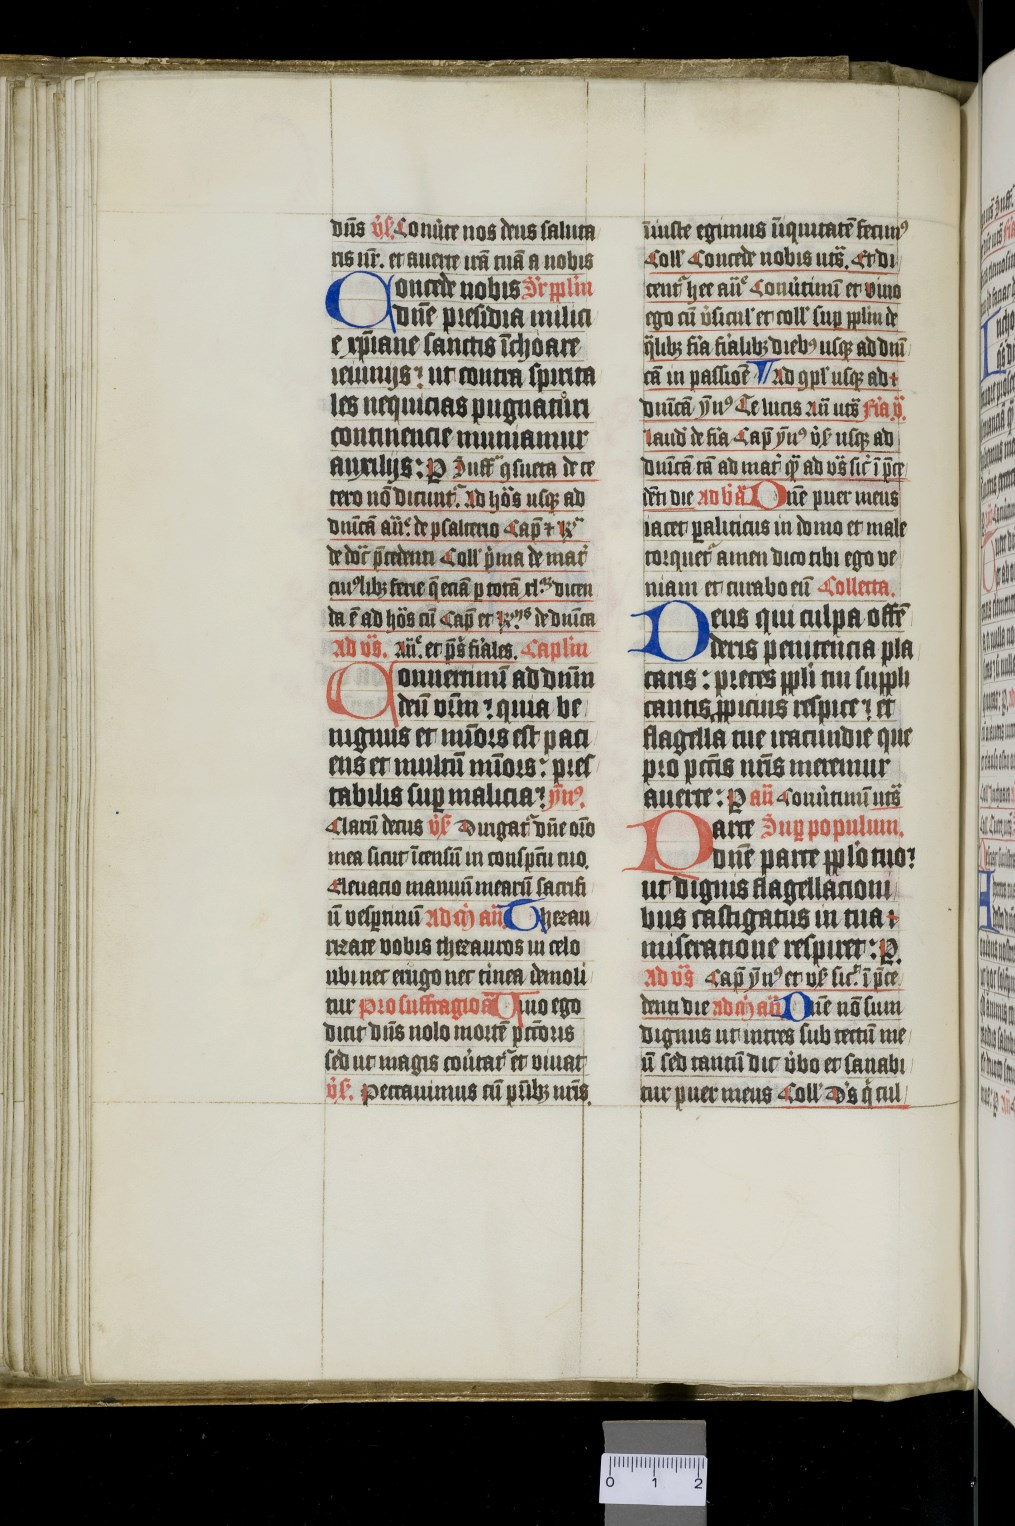 dn̄s v̓s̓. Conũte nos deus saluta
ris nr̄. et auerte irā tuā a nobis
Concede nobis Sr̄ pplm̄
dn̄e presidia milici
e xp̄iane sanctis īchoare
ieiunijs: ut contra spirita
les nequicias pugnaturi
continencie muniamur
auxilijs: P Suff. ꝯsueta de ce
tero nō dicunt̄. Ad hōs usqꝫ ad
dn̄icā an̄. de psalterio Cap̄ et R̄
de dn̄ic p̄cedenti Coll' p̄ma de mat̄
cuiꝰlibꝫ ferie q̄ eciā p totā xl.ᵃᵐ dicen
da ē ad hōs cū Cap̄ et R̄ de dn̄ica
Ad v̄s. An̄. et p̄s fiales. Caplm
Conuertimī ad dn̄m
deū vr̄m: quia be
nignus et mīors est paci
ens et multū mīors: pres
tabilis sup malicia: ỹnꝰ.
Clarū decus v̓s̓ Dirigat̄ dn̄e orō
mea sicut īcensū in conspc̄tu tuo.
Eleuacio manuū mearū sacrifi
ū vesptinū Ad m̄ an̄ Thezau
rizate vobis thezauros in celo
ubi nec erugo nec tinea demoli
tur Pro suffragio ā Viuo ego
dicit dn̄s nolo mortē pctōris
sed ut magis cōũtat̄ et viuat
v̓s̓. Peccauimus cū pr̄ibꝫ nr̄is.
īiuste egimus īiquitatē fecimꝰ
Coll' Concede nobis ut s̄. Et di
cent̄ hec an̄e Conũtimī et viuo
ego cū v̓sicul' et coll' sup pplm de
q̄libꝫ fia fialibꝫ diebꝰ usqꝫ ad dn̄i
cā in passiōe ¶ Ad ꝯpl' usqꝫ ad
dn̄icā ỹnꝰ Te lucis An̄ ut s̄ Fia v̄.
laud' de fia Cap̄ ỹnꝰ v̓s̓ usqꝫ ad
dn̄icā tā ad mat̄ qꝫ ad v̄s sic̄ ī p̄ce
dēti die Ad b̄ ā Dn̄e puer meus
iacet paliticus in domo et male
torquet̄ amen dico tibi ego ve
niam et curabo eū Collecta.
Deus qui culpa offē
deris penitencia pla
caris: preces ppli tui suppli
cantis ꝓpicius respice: et
flagella tue iracundie que
pro pctīs nr̄is meremur
auerte: P an̄ Conũtimī ut s̄
Parce Sup populum.
dn̄e parce pplo tuo:
ut dignis flagellacioni
bus castigatus in tua
miseratione respiret: P.
Ad v̄s Cap̄ ỹnꝰ et v̓s̓ sic̄ ī p̄ce
denti die ad m̄ an̄ Dn̄e nō sum
dignus ut intres sub tectū me
ū sed tantū dic v̓bo et sanabi
tur puer meus Coll' D's q̄ cul
0 1 2